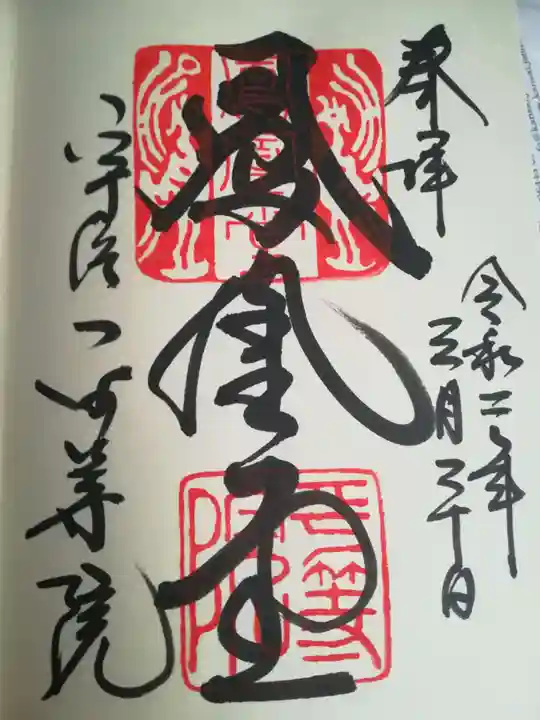 奉拝
令和二年
三月三十日
鳳凰堂
宇治 平等院
平等院